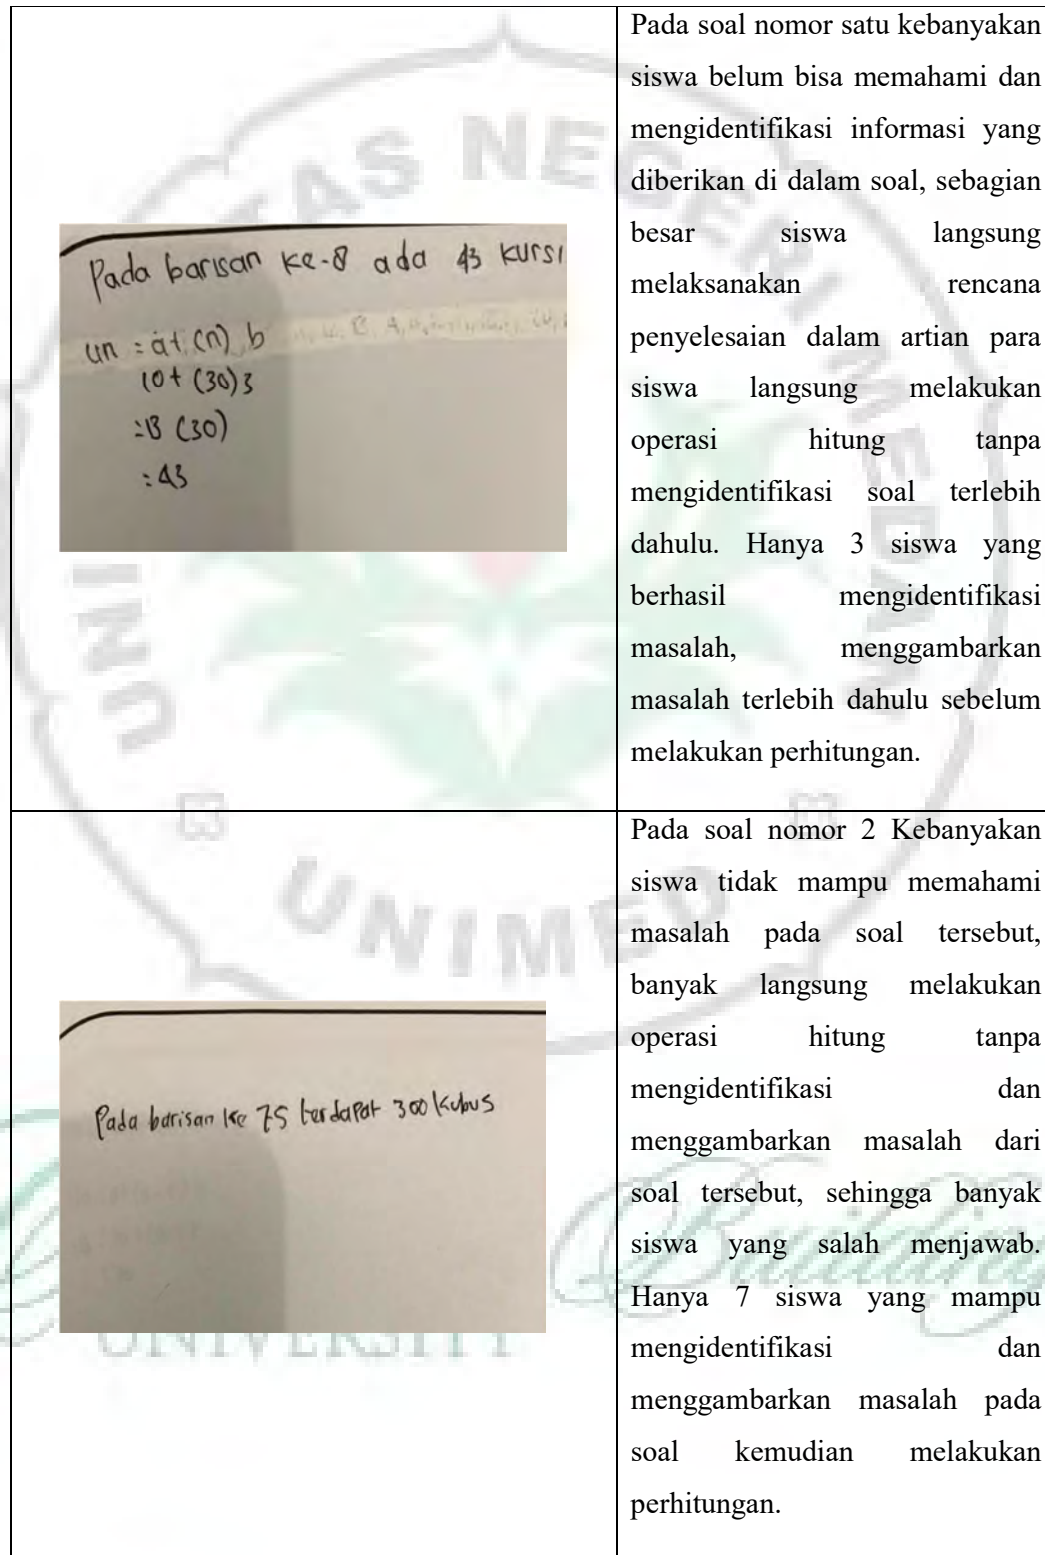 Pada barisan ke-8 ada 43 kursi
Un = a+ (n) b
10+ (30)3
=13 (30)
= 43
Pada soal nomor satu kebanyakan
siswa belum bisa memahami dan
mengidentifikasi informasi yang
diberikan di dalam soal, sebagian
besar siswa langsung
melaksanakan rencana
penyelesaian dalam artian para
siswa langsung melakukan
operasi hitung tanpa
mengidentifikasi soal terlebih
dahulu. Hanya 3 siswa yang
berhasil mengidentifikasi
masalah, menggambarkan
masalah terlebih dahulu sebelum
melakukan perhitungan.
Pada barisan ke 75 terdapat 300 kubus
Pada soal nomor 2 Kebanyakan
siswa tidak mampu memahami
masalah pada soal tersebut,
banyak langsung melakukan
operasi hitung tanpa
mengidentifikasi dan
menggambarkan masalah dari
soal tersebut, sehingga banyak
siswa yang salah menjawab.
Hanya 7 siswa yang mampu
mengidentifikasi dan
menggambarkan masalah pada
soal kemudian melakukan
perhitungan.
UNIMED
Building
UNIVERSITY